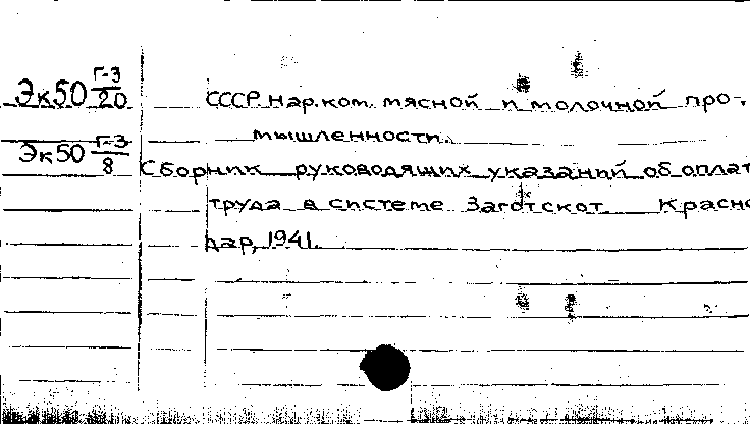 Эк50 Г-3/20
СССР. Нар.ком. мясной и молочной про-
мышленности.
Эк50 Г-3/8
Сборник руководящих указаний об оплат
труда в системе Заготскот Красно
дар, 1941.